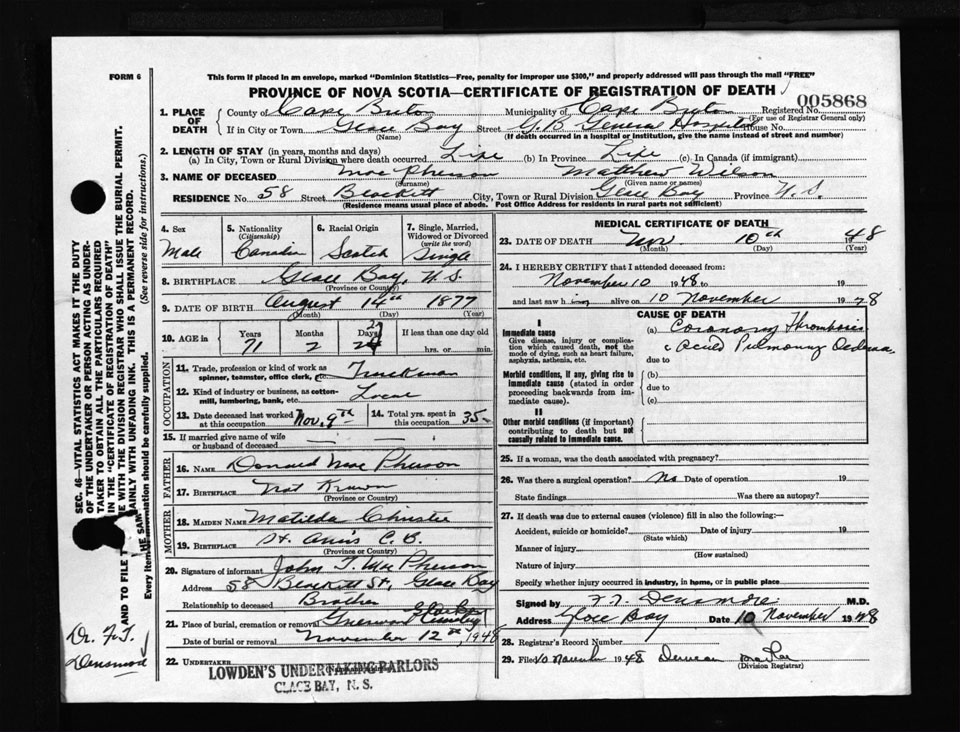 FORM 6
This form if placed in an envelope, marked "Dominion Statistics—Free, penalty for improper use $300," and properly addressed will pass through the mail "FREE"
PROVINCE OF NOVA SCOTIA—CERTIFICATE OF REGISTRATION OF DEATH
005868
1. PLACE OF DEATH
County of Cape Breton Municipality of Cape Breton Registered No.
(For use of Registrar General only)
If in City or Town Glace Bay Street G.B General Hospital House No.
(Name) (If death occurred in a hospital or institution, give the name instead of street and number)
2. LENGTH OF STAY (in years, months and days)
(a) In City, Town or Rural Division where death occurred Life (b) In Province Life (c) In Canada (if immigrant)
3. NAME OF DECEASED Mac Pherson Matthew Wilson
(Surname) (Given name or names)
RESIDENCE No. 58 Street Brockett City, Town or Rural Division Glace Bay Province N.S.
(Residence means usual place of abode. Post Office Address for residents in rural parts not sufficient)
4. Sex Male
5. Nationality (Citizenship) Canadian
6. Racial Origin Scotch
7. Single, Married, Widowed or Divorced (write the word) Single
8. BIRTHPLACE Glace Bay, N.S.
(Province or County)
9. DATE OF BIRTH August 14th 1877
(Month) (Day) (Year)
10. AGE in Years Months Days If less than one day old
71 2 27 hrs. or min.
OCCUPATION
11. Trade, profession or kind of work as spinner, teamster, office clerk, etc. Truckman
12. Kind of industry or business, as cotton-mill, lumbering, bank, etc. Local
13. Date deceased last worked at this occupation Nov. 9th
14. Total yrs. spent in this occupation 35
15. If married give name of wife or husband of deceased
FATHER
16. NAME Donald Mac Pherson
17. BIRTHPLACE Not Known
(Province or Country)
MOTHER
18. MAIDEN NAME Matilda Christie
19. BIRTHPLACE St. Anns C.B.
(Province or Country)
20. Signature of informant John T. Mac Pherson
Address 58 Brockett St, Glace Bay
Relationship to deceased Brother
21. Place of burial, cremation or removal Greenwood Cemetery Glace Bay
Date of burial or removal November 12th, 1948
22. UNDERTAKER LOWDEN'S UNDERTAKING PARLORS
GLACE BAY, N. S.
MEDICAL CERTIFICATE OF DEATH
23. DATE OF DEATH Nov 10th 1948
(Month) (Day) (Year)
24. I HEREBY CERTIFY that I attended deceased from:
November 10 1948 to 19
and last saw h im alive on 10 November 1948
CAUSE OF DEATH
I
Immediate cause
Give disease, injury or complication which caused death, not the mode of dying, such as heart failure, asphyxia, asthenia, etc.
(a) Coronary Thrombosis
c Acute Pulmonary Oedema
due to
Morbid conditions, if any, giving rise to immediate cause (stated in order proceeding backwards from immediate cause)
(b)
due to
(c)
II
Other morbid conditions (if important) contributing to death but not causally related to immediate cause.
25. If a woman, was the death associated with pregnancy?
26. Was there a surgical operation? No Date of operation 19
State findings Was there an autopsy?
27. If death was due to external causes (violence) fill in also the following:—
Accident, suicide or homicide? Date of injury 19
(State which)
Manner of injury
(How sustained)
Nature of injury
Specify whether injury occurred in industry, in home, or in public place
Signed by F.T. Densmore M.D.
Address Glace Bay Date 10 November 1948
28. Registrar's Record Number
29. Filed 10 November 1948 Duncan
(Division Registrar)
SEC. 46—VITAL STATISTICS ACT MAKES IT THE DUTY
OF THE UNDERTAKER OR PERSON ACTING AS UNDER-
TAKER TO OBTAIN ALL THE PARTICULARS REQUIRED
IN THE "CERTIFICATE OF REGISTRATION OF DEATH"
AND TO FILE THE SAME WITH THE DIVISION REGISTRAR WHO SHALL ISSUE THE BURIAL PERMIT.
PLAINLY WITH UNFADING INK. THIS IS A PERMANENT RECORD.
Every item of information should be carefully supplied. (See reverse side for instructions.)
Dr. F.T.
Densmore